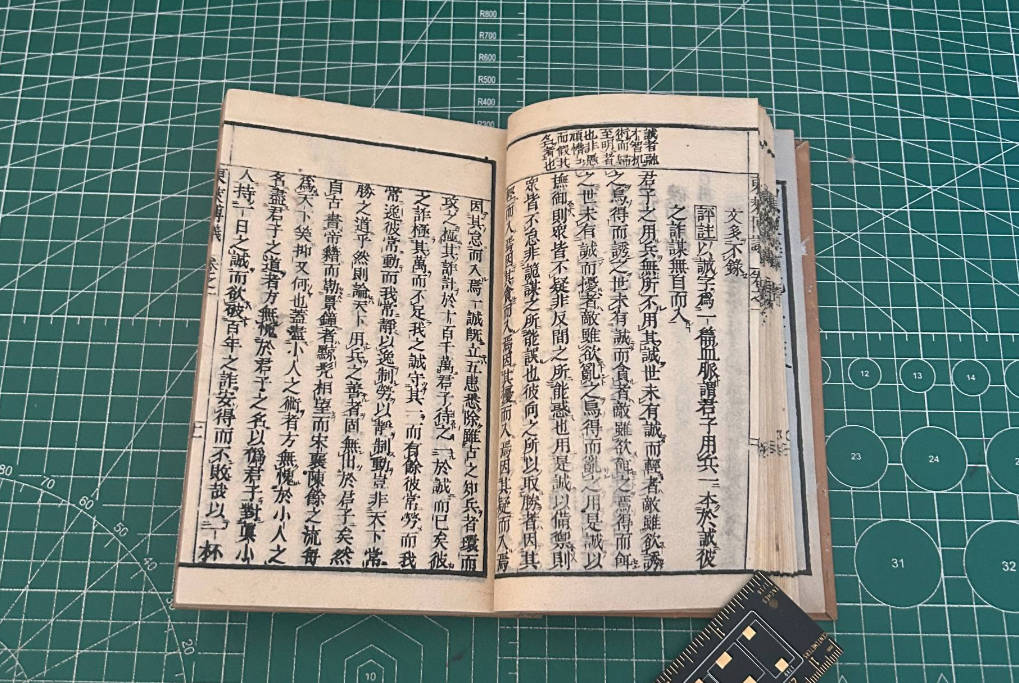 誠者詭
不智机
術而歸
至明者
也非愚
頑懵少
而假其
名者也
文多不錄
評註以誠字爲一篇血脈謂君子用兵一本於誠彼
之詐謀無自而入
君子之用兵無所不用其誠世未有誠而輕者敵雖欲誘
之焉得而誘之世未有誠而貪者敵雖欲餌之焉得而餌
之世未有誠而擾者敵雖欲亂之焉得而亂之用是誠以
撫御則眾皆不疑非反間之所能惑也用是誠以備禦則
眾皆不怠非詭謀之所能誤也彼向之所以取勝者因其
輕而入焉因其貪而入焉因其擾而入焉因其疑而入焉
因其怠而入焉一誠既立五患悉除雖古之知兵者環而
攻之極其詐計於十百千萬君子待之一於誠而已矣彼
之詐極其萬而不足我之誠守其一而有餘彼常勞而我
常逸彼常動而我常靜以逸制勞以靜制動豈非天下常
勝之道乎然則論天下用兵之善者固無出於君子矣然
自古書帝籍而勒景鐘者黥髡相望而宋襄陳餘之流每
爲天下笑抑又何也蓋盡小人之術者方無愧於小人之
名盡君子之道者方無愧於君子之名以僞君子對眞小
人持一日之誠而欲破百年之詐安得而不敗哉以一杯
東萊博議 卷之一
R800
R700
R600
R500
R400
R300
12
13
14
23
24
31
32
80
70
60
50
40
20
10